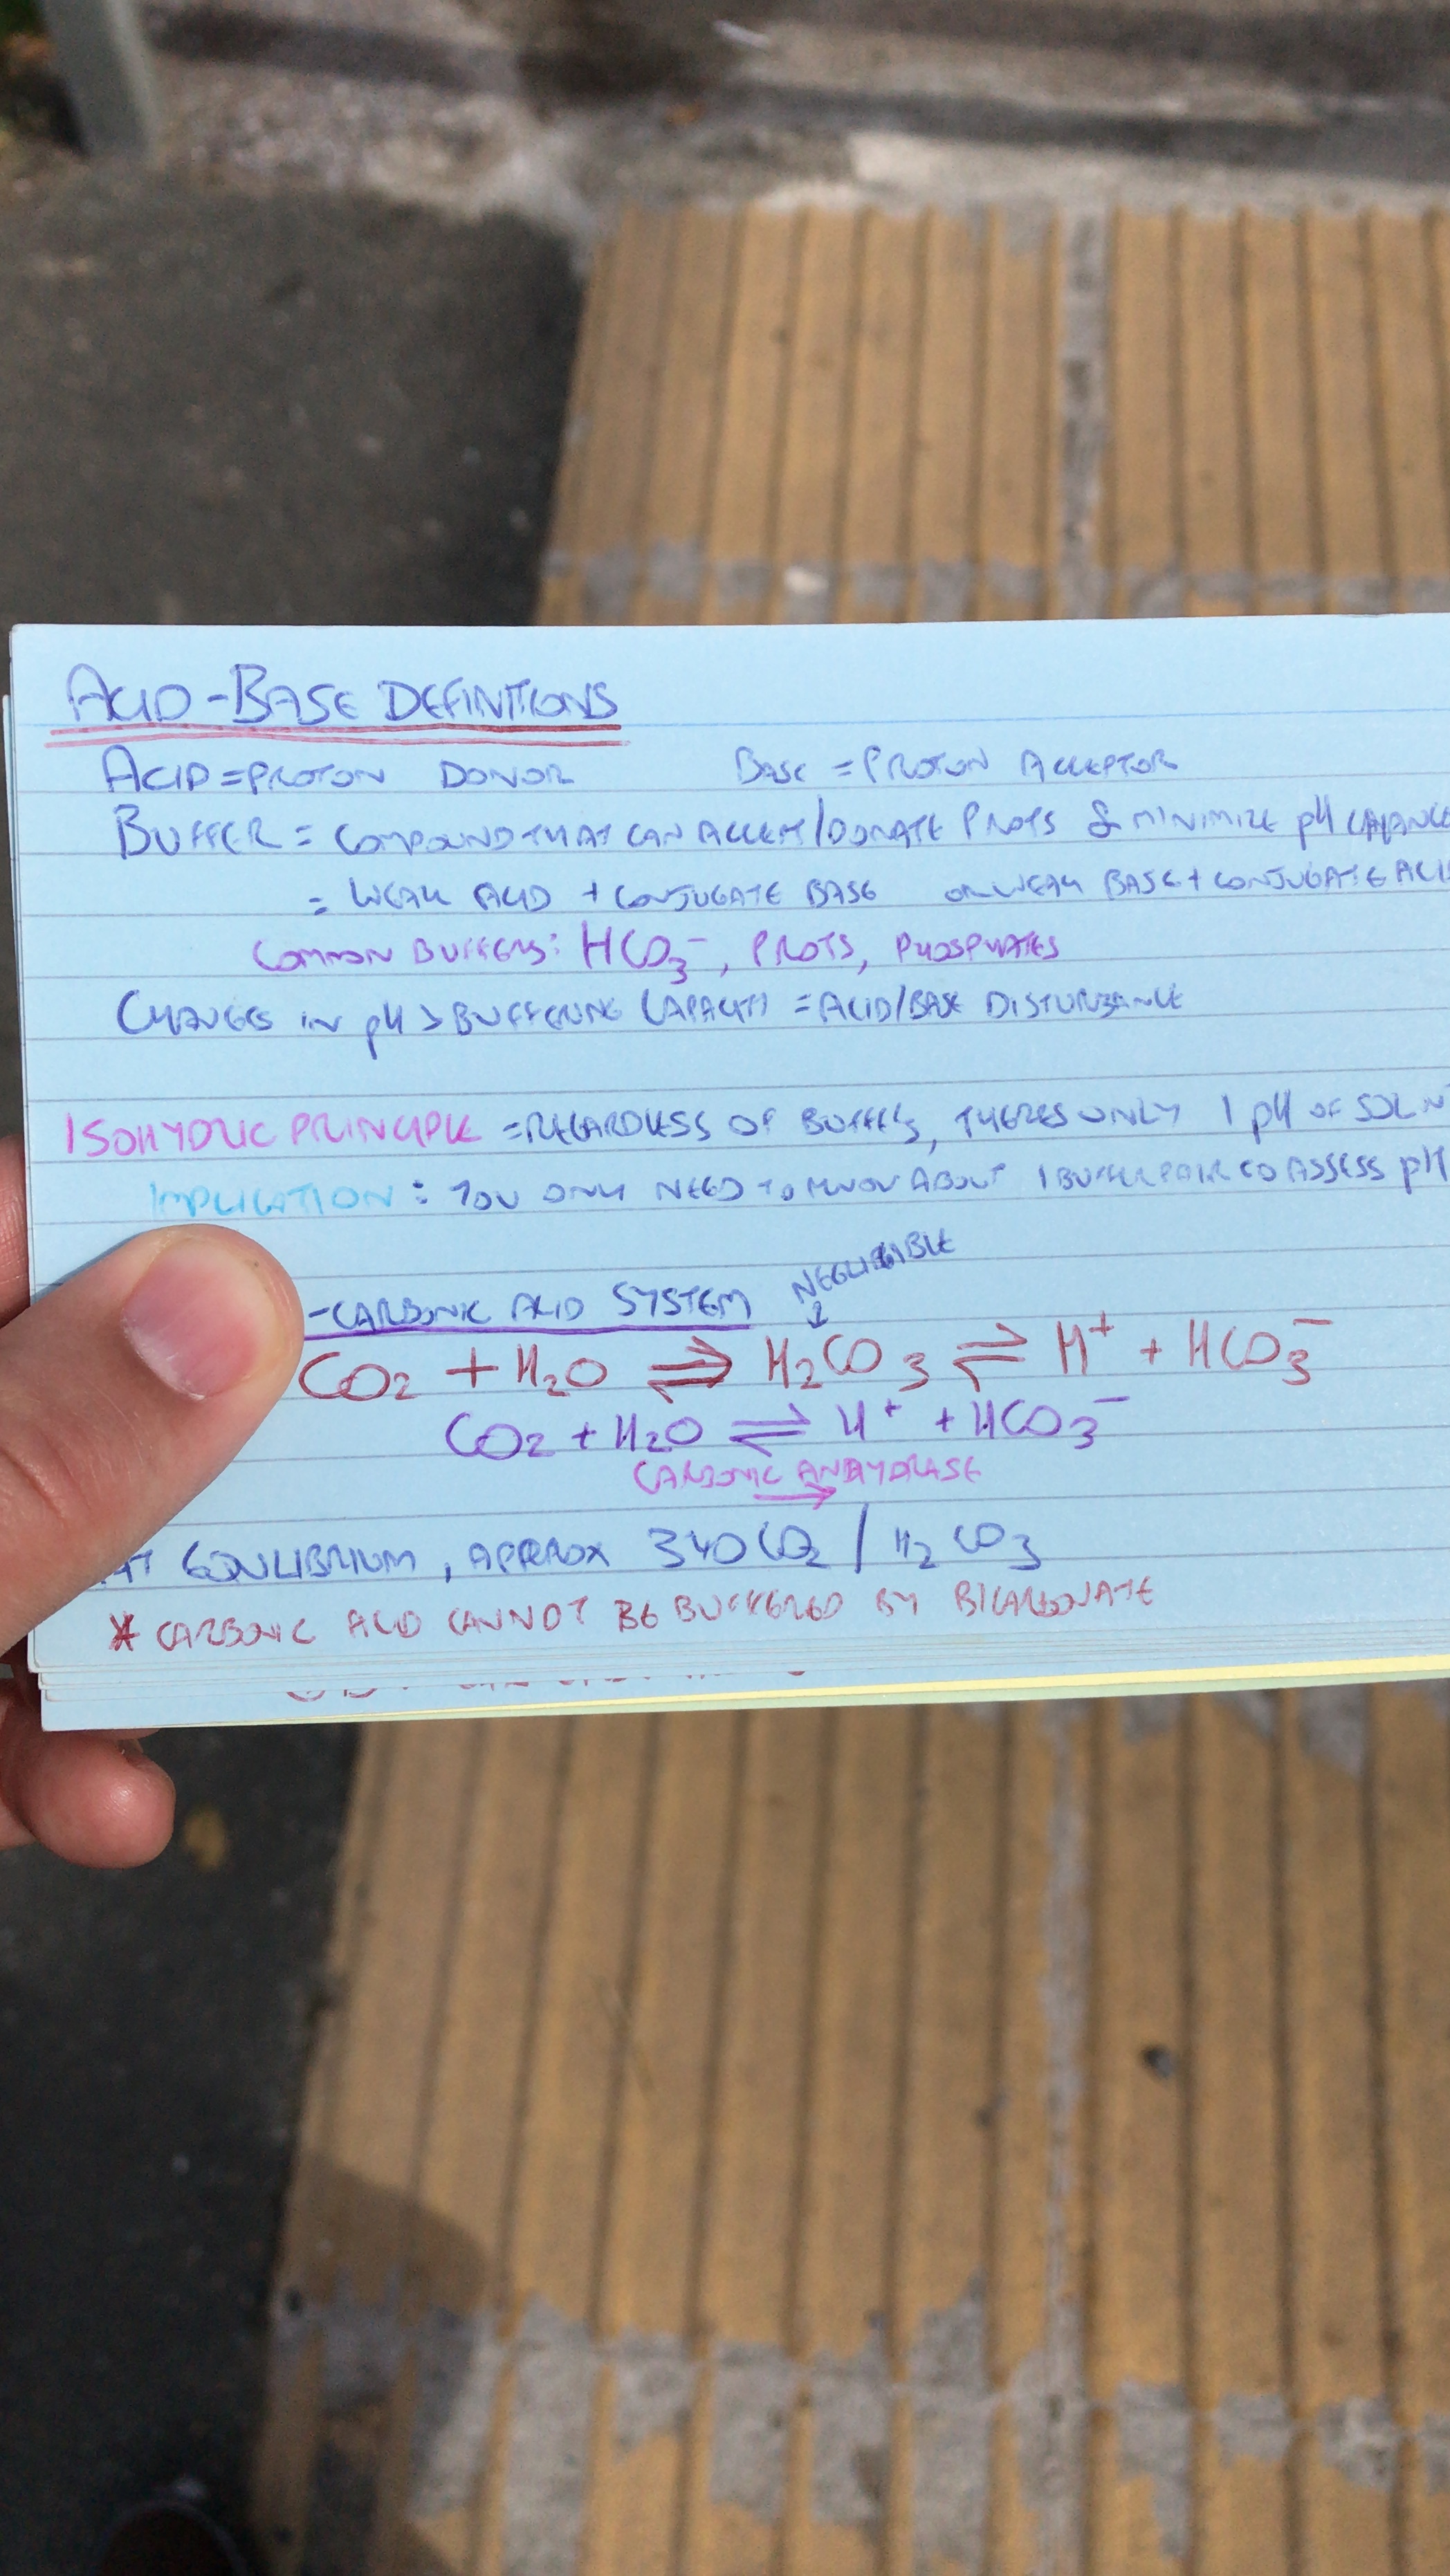 ACID-BASE DEFINITIONS
ACID = PROTON DONOR BASE = PROTON ACCEPTOR
BUFFER = COMPOUND THAT CAN ACCEPT/DONATE PROTS & MINIMIZE pH CHANGE
= WEAK ACID + CONJUGATE BASE OR WEAK BASE + CONJUGATE ACID
COMMON BUFFERS: HCO₃⁻, PROTS, PHOSPHATES
CHANGES IN pH > BUFFERING CAPACITY = ACID/BASE DISTURBANCE
ISOHYDRIC PRINCIPLE = REGARDLESS OF BUFFERS, THERES ONLY 1 pH OF SOLN
IMPLICATION: YOU ONLY NEED TO KNOW ABOUT 1 BUFFER PAIR TO ASSESS pH
-CARBONIC ACID SYSTEM NEGLIGIBLE ↓
CO₂ + H₂O ⇌ H₂CO₃ ⇌ H⁺ + HCO₃⁻
CO₂ + H₂O ⇌ H⁺ + HCO₃⁻
CARBONIC ANHYDRASE
→
AT EQUILIBRIUM, APPROX 340 CO₂ / H₂CO₃
* CARBONIC ACID CANNOT BE BUFFERED BY BICARBONATE